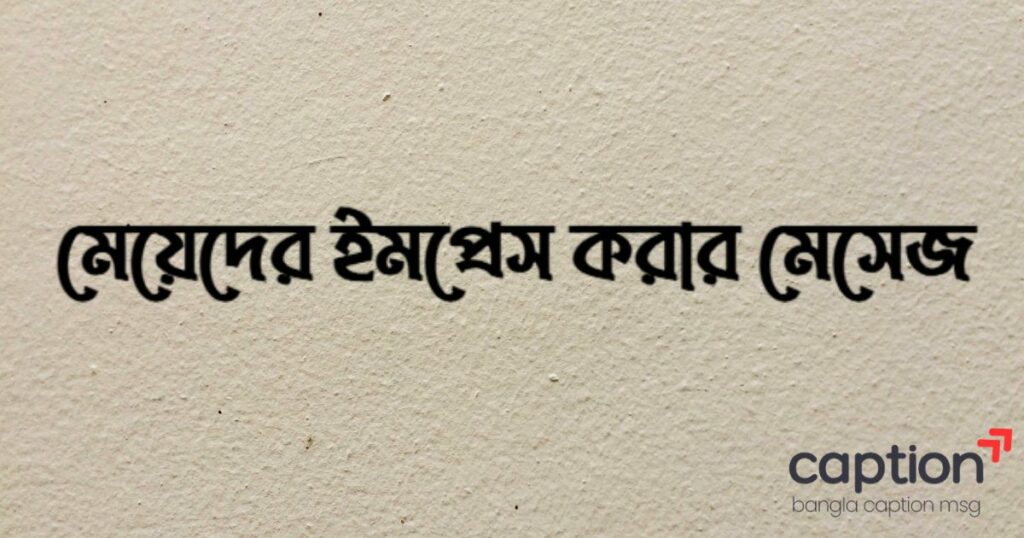 মেয়েদের ইমপ্রেস করার মেসেজ
caption
bangla caption msg